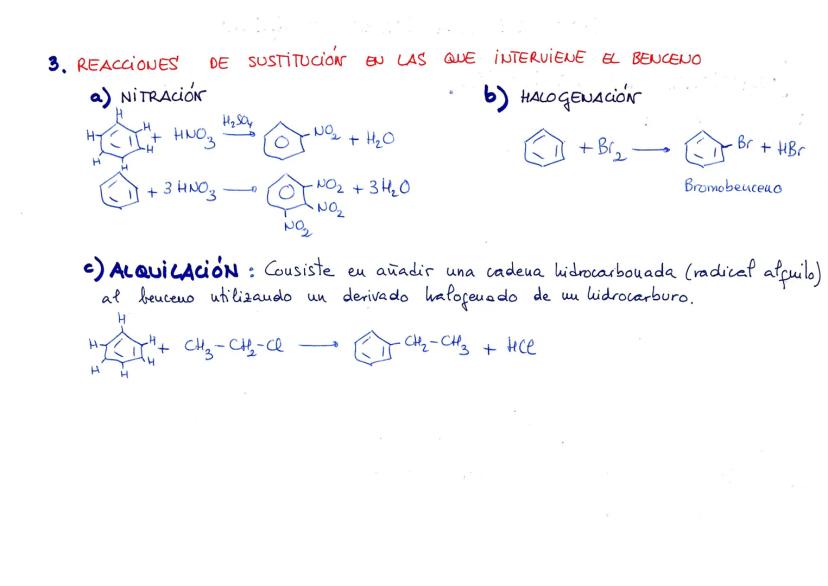 3. REACCIONES DE SUSTITUCIÓN EN LAS QUE INTERVIENE EL BENCENO
a) NITRACIÓN
H H H H H H + HNO3 H2SO4 → NO2 + H2O
+ 3 HNO3 → NO2 NO2 NO2 + 3 H2O
b) HALOGENACIÓN
+ Br2 → Br + HBr
Bromobenceno
c) ALQUILACIÓN : Consiste en añadir una cadena hidrocarbonada (radical alquilo)
al benceno utilizando un derivado halogenado de un hidrocarburo.
H H H H H H + CH3-CH2-Cl → CH2-CH3 + HCl